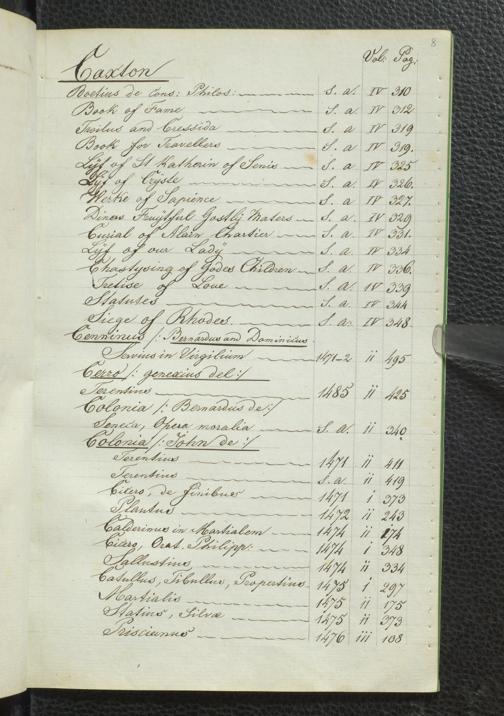 8
Vol: Pag:
Caxton
Boetius de Cons: Philos: s. a. IV 310
Book of Fame s. a. IV 312
Troilus and Cressida s. a IV 319
Book for Travellers s. a IV 319.
Lijf of St Katherin of Senis s. a IV 325
Lijf of Cryste s. a IV 326.
Werke of Sapience s. a. IV 327.
Divers Fruijtful Gostlij Maters s. a. IV 329
Curial of Alain Chartier s. a. IV 331.
Lijf of our Ladij s. a. IV 334
Chastysing of Godes Children s. a. IV 336.
Tretise of Love s. a. IV 339
Statutes s. a. IV 344
Siege of Rhodes. s. a. IV 348.
Cenninus /: Bernardus and Dominicus
Servius in Virgilium 1471-2 ii 495
Cerro /: genexius del :/
Terentius 1485 ii 425
Colonia /: Bernardus de :/
Seneca, Opera moralia s. a. ii 340
Colonia /: John de :/
Terentius 1471 ii 411
Terentius s. a ii 419
Cicero, de finibus 1471 i 373
Plautus 1472 ii 243
Calderinus in Martialem 1474 ii 174
Cicero, Orat. Philipp: 1474 i 348
Sallustius 1474 ii 334
Catullus, Tibullus, Propertius 1475 i 297
Martialis 1475 ii 175
Statius, Silvæ 1475 ii 373
Priscianus 1476 iii 108